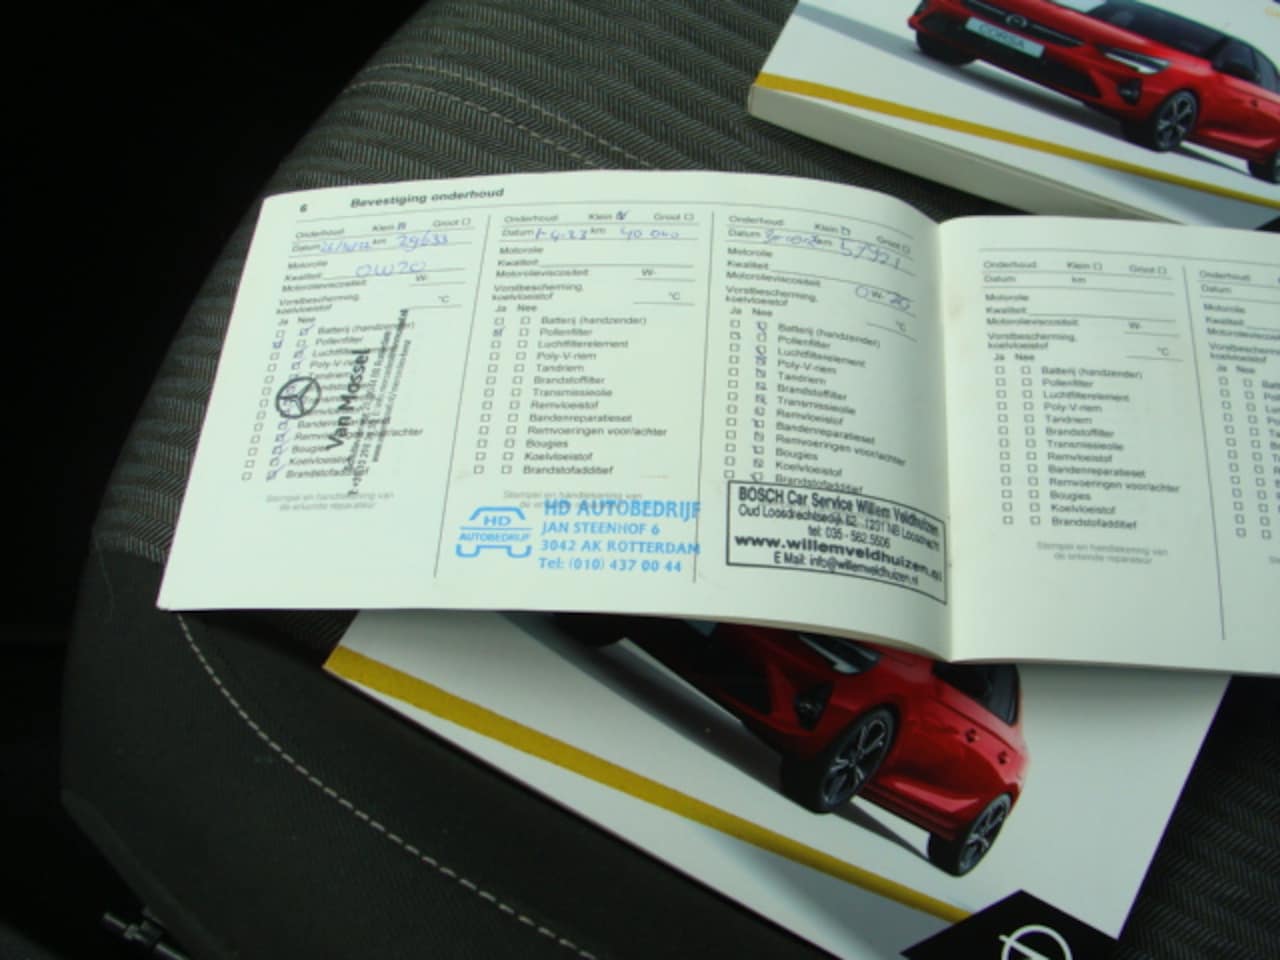 CORSA
6 Bevestiging onderhoud
Onderhoud: Klein Groot
Datum km 29633
Motorolie
Kwaliteit 0W20
Motorolieviscositeit W-
Vorstbescherming, koelvloeistof °C
Ja Nee
Batterij (handzender)
Pollenfilter
Poly-V-riem
Bougies
Brandstofadditief
Van Mossel
Stempel en handtekening van
de erkende reparateur
Onderhoud: Klein Groot
Datum 1-4-23 km 40 000
Motorolie
Kwaliteit
Motorolieviscositeit W-
Vorstbescherming,
koelvloeistof °C
Ja Nee
Batterij (handzender)
Pollenfilter
Luchtfilterelement
Poly-V-riem
Tandriem
Brandstoffilter
Transmissieolie
Remvloeistof
Bandenreparatieset
Remvoeringen voor/achter
Bougies
Koelvloeistof
Brandstofadditief
Stempel en handtekening van
HD AUTOBEDRIJF
JAN STEENHOF 6
3042 AK ROTTERDAM
Tel: (010) 437 00 44
HD
AUTOBEDRIJF
Onderhoud: Klein Groot
Datum km 57921
Motorolie
Kwaliteit
Motorolieviscositeit 0 W- 20
Vorstbescherming,
koelvloeistof °C
Ja Nee
Batterij (handzender)
Pollenfilter
Luchtfilterelement
Poly-V-riem
Tandriem
Brandstoffilter
Transmissieolie
Remvloeistof
Bandenreparatieset
Remvoeringen voor/achter
Bougies
Koelvloeistof
Brandstofadditief
BOSCH Car Service Willem Veldhuizen
Oud Loosdrechtsedijk 62, 1231 NB Loosdrecht
tel: 035 - 582 5506
www.willemveldhuizen.nl
E Mail: info@willemveldhuizen.nl
Onderhoud: Klein Groot
Datum km
Motorolie
Kwaliteit
Motorolieviscositeit W-
Vorstbescherming,
koelvloeistof °C
Ja Nee
Batterij (handzender)
Pollenfilter
Luchtfilterelement
Poly-V-riem
Tandriem
Brandstoffilter
Transmissieolie
Remvloeistof
Bandenreparatieset
Remvoeringen voor/achter
Bougies
Koelvloeistof
Brandstofadditief
Stempel en handtekening van
de erkende reparateur
Onderhoud:
Datum
Motorolie
Kwaliteit
Motorolieviscositeit
Vorstbescherming,
koelvloeistof
Ja Nee